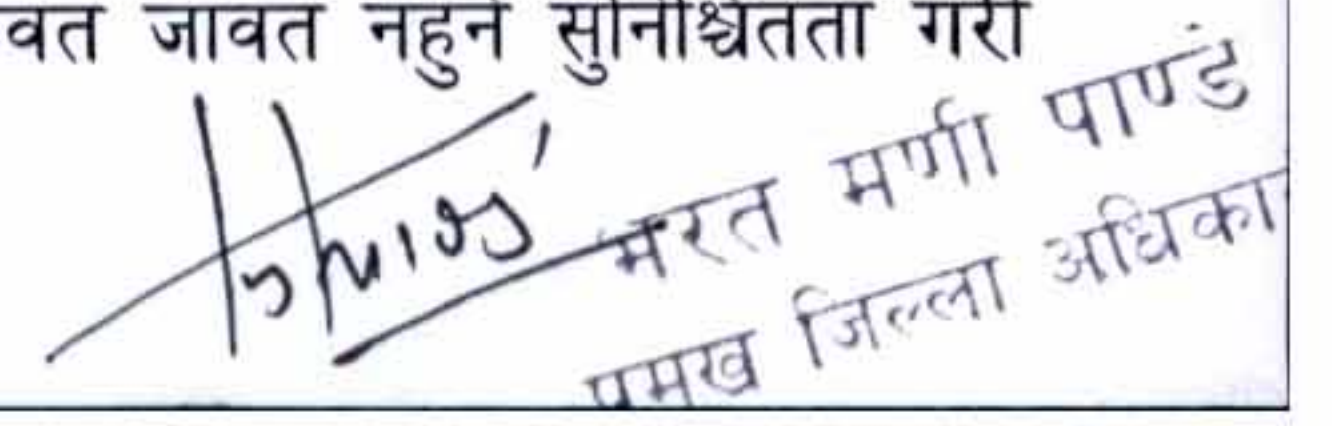 वत जावत नहुने सुनिश्चितता गरी
भरत मणी पाण्डे
प्रमुख जिल्ला अधिका